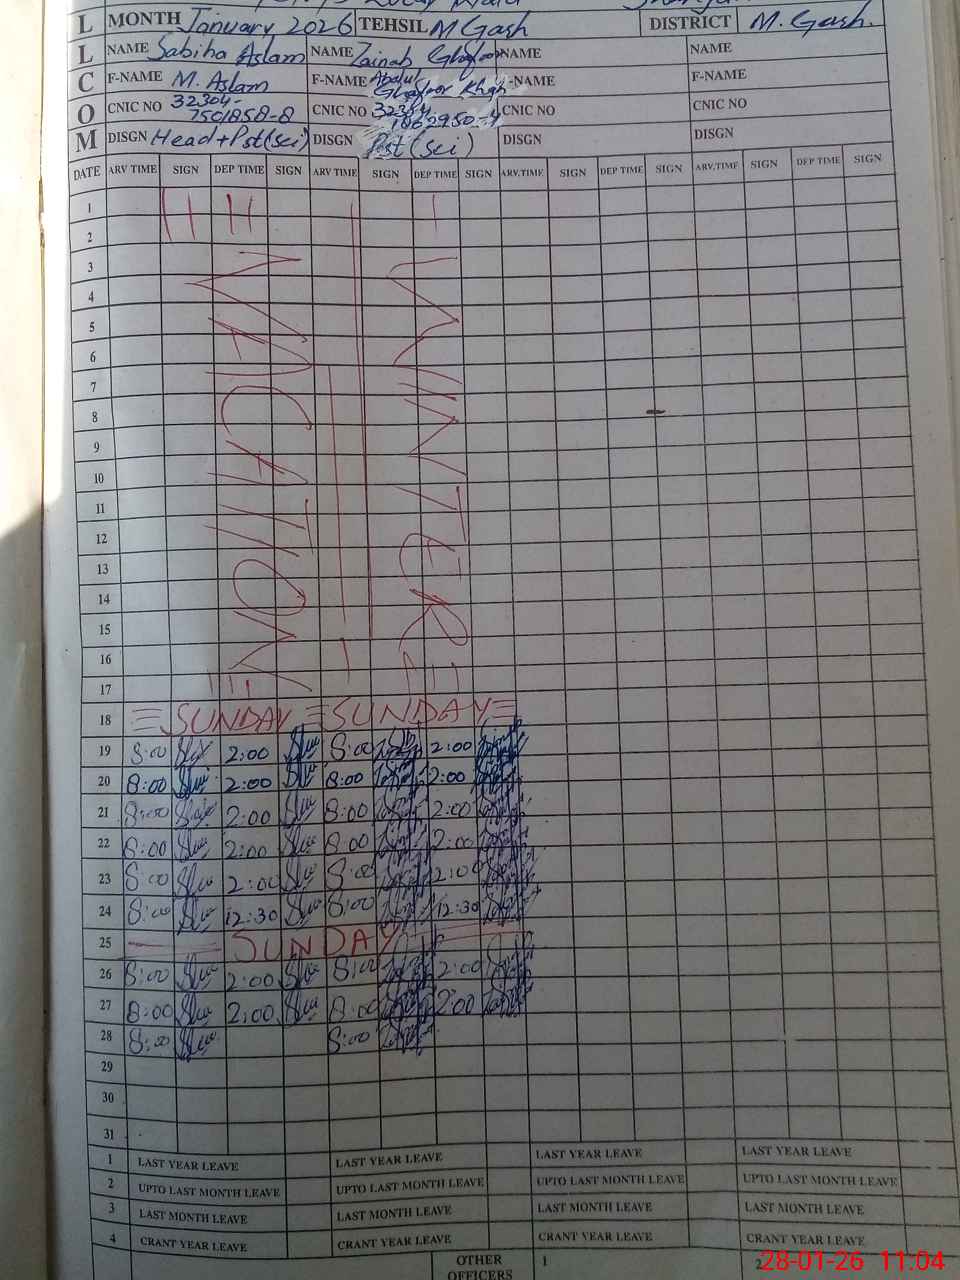 L MONTH January 2026 TEHSIL M Gash DISTRICT M. Gash.
L NAME Sabiha Aslam NAME Zainab NAME NAME
C F-NAME M. Aslam F-NAME Abdul Ghafoor Khan F-NAME F-NAME
O CNIC NO 32304-7501858-8 CNIC NO CNIC NO CNIC NO
M DISGN Head+Pst(sci) DISGN Pst (sci) DISGN DISGN
DATE ARV TIME SIGN DEP TIME SIGN ARV TIME SIGN DEP TIME SIGN ARV.TIME SIGN DEP TIME SIGN ARV.TIME SIGN DEP TIME SIGN
1
2
3
4
5
6
7
8
9
10
11
12
13
14
15
16
17
WINTER
VACATION
18 SUNDAY SUNDAY
19 8:00 2:00 8:00 2:00
20 8:00 2:00 8:00 2:00
21 8:00 2:00 8:00 2:00
22 8:00 2:00 8:00 2:00
23 8:00 2:00 8:00 2:00
24 8:00 12:30 8:00 12:30
25 SUNDAY
26 8:00 2:00 8:00 2:00
27 8:00 2:00 8:00 2:00
28 8:00 8:00
29
30
31
1 LAST YEAR LEAVE LAST YEAR LEAVE LAST YEAR LEAVE LAST YEAR LEAVE
2 UPTO LAST MONTH LEAVE UPTO LAST MONTH LEAVE UPTO LAST MONTH LEAVE UPTO LAST MONTH LEAVE
3 LAST MONTH LEAVE LAST MONTH LEAVE LAST MONTH LEAVE LAST MONTH LEAVE
4 CRANT YEAR LEAVE CRANT YEAR LEAVE CRANT YEAR LEAVE
OTHER OFFICERS 1 2
28-01-26 11:04